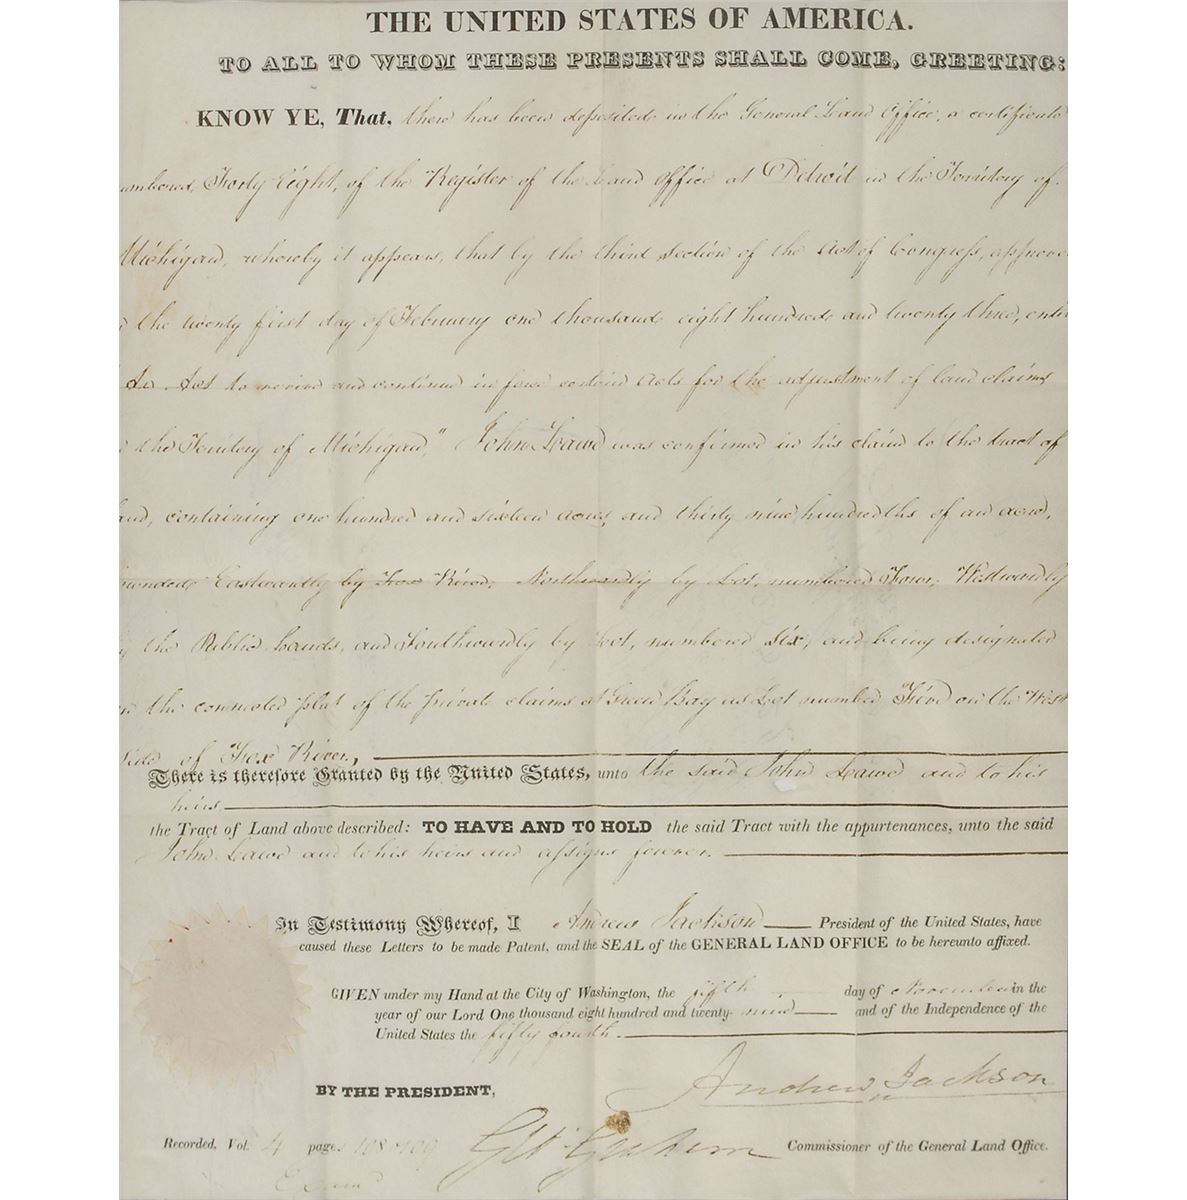 THE UNITED STATES OF AMERICA.
TO ALL TO WHOM THESE PRESENTS SHALL COME, GREETING:
KNOW YE, That, there has been deposited in the General Land Office, a certificate
umbered, Forty Eight, of the Register of the Land Office at Detroit in the Territory of
Michigan, whereby it appears, that by the third section of the Act of Congress, approve
the twenty first day of February one thousand eight hundred and twenty three, enti
An Act to revive and continue in force certain Acts for the adjustment of land claims
the Territory of Michigan," John Lawe was confirmed in his claim to the tract of
and, containing one hundred and sixteen acres, and thirty nine hundredths of an acre,
bounded Eastwardly by Fox River; Northwardly by Lot, numbered Four; Westwardly
the Public Lands, and Southwardly by Lot, numbered Six; and being designated
on the connected plat of the private claims at Green Bay as Lot number Five on the West
side of Fox River,
There is therefore Granted by the United States, unto the said John Lawe and to his
heirs
the Tract of Land above described: TO HAVE AND TO HOLD the said Tract with the appurtenances, unto the said
John Lawe and to his heirs and assigns forever.
In Testimony Whereof, I Andrew Jackson President of the United States, have
caused these Letters to be made Patent, and the SEAL of the GENERAL LAND OFFICE to be hereunto affixed.
GIVEN under my Hand at the City of Washington, the fifth day of November in the
year of our Lord One thousand eight hundred and twenty-nine and of the Independence of the
United States the fifty fourth.
Andrew Jackson
BY THE PRESIDENT,
Recorded, Vol. 4 pages 108 + 109 Geo: Graham Commissioner of the General Land Office.